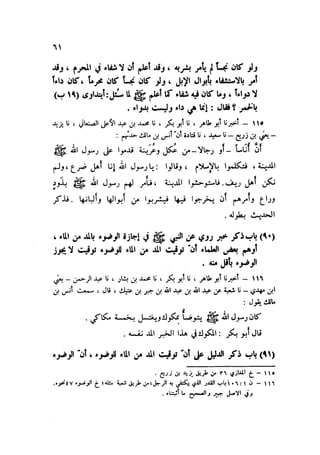 ٦١
ولو كان نجساً لم يأمر بشربه ، وقد أعلم أن لا شفاء في المحرم ، وقد
أمر بالاستشفاء بأبوال الإبل ، ولو كان نجساً كان محرماً ، كان داءاً
لا دواءاً ، وما كان فيه شفاء كما أعلم ﷺ لما سئل : أيتداوى (١٩ ب)
بالخمر ؟ فقال : إنما هي داء وليست بدواء .
١١٥ – أخبرنا أبو طاهر ، نا أبو بكر ، نا محمد بن عبد الأعلى الصنعاني ، نا يزيد
– يعني بن زريع – نا سعيد ، نا قتادة أنّ أنس بن مالك حدثهم :
أنّ أناساً – أو رجالا – من عكل وعرينة قدموا على رسول الله ﷺ
المدينة ، فتكلموا بالإسلام ، وقالوا : يا رسول الله إنا أهل ضرع ، ولم
نكن أهل ريف . فاستوخموا المدينة ، فأمر لهم رسول الله ﷺ بذود
وراع وأمرهم أن يخرجوا فيها فيشربوا من أبوالها وألبانها . فذكر
الحديث بطوله .
(٩٠) باب ذكر خبر روي عن النبي ﷺ في إجازة الوضوء بالمد من الماء ،
أوهم بعض العلماء أنّ توقيت المد من الماء للوضوء توقيت لا يجوز
الوضوء بأقل منه .
١١٦ – أخبرنا أبو طاهر ، نا أبو بكر ، نا محمد بن بشار ، نا عبد الرحمن – يعني
ابن مهدي – نا شعبة عن عبد الله بن عبد الله بن جبر بن عتيك ، قال ، سمعت أنس بن
مالك يقول :
كان رسول الله ﷺ يتوضأ بمكوك ويغتسل بخمسة مكاكي .
قال أبو بكر : المكوك في هذا الخبر المد نفسه .
(٩١) باب ذكر الدليل على أنّ توقيت المد من الماء للوضوء ، أنّ الوضوء
١١٥ – خ المغازي ٣٦ من طريق يزيد بن زريع .
١١٦ – ن ١ : ٥٠ باب القدر الذي يكتفي به الرجل ، من طريق شعبة مثله ؛ خ الوضوء ٤٧ نحوه .
وفي الأصل جبير والصحيح ما أثبتناه .